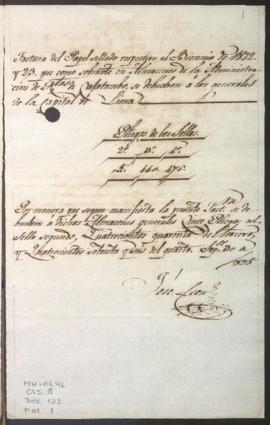 1
Factura del Papel sellado respectivo al Bienio de 1822
y 23. que como sobrante en Almacenes de la Administra-
cion de de Cajatambo, se debuelven a los generales
de la Capital de Lima
Pliegos de los Sellos.
2º 3º 4º
15. 440. 471.
De manera que segun manifiesta la presente fact.ra se de-
buelven a dichos Almacenes generales Pliegos del
Sello segundo, Quatrocientos quarenta del tercero,
y Quatrocientos setenta y uno del quarto.
José
MH-OL 46
CAJ. 8
DOC. 122
FOL. 1